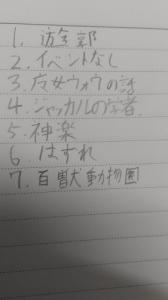 1. 訪会部
2. イベントなし
3. 魔女ウォウの話
4. ジャッカルの学者
5. 神楽
6. はずれ
7. 百獣動物園